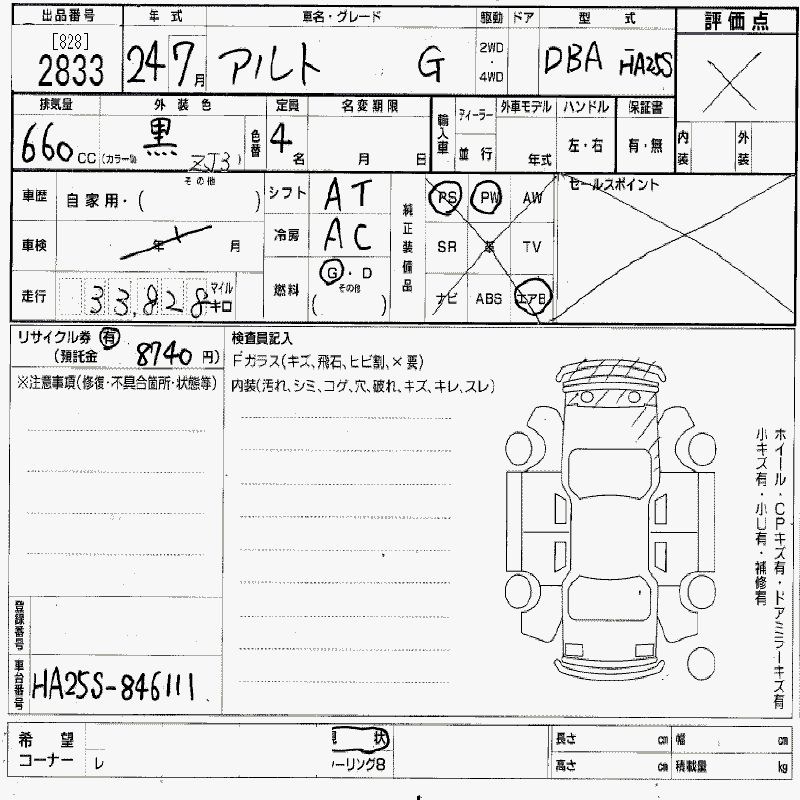 出品番号 年式 車名・グレード 駆動 ドア 型式 評価点
[828]
2833 24 7月 アルト G 2WD・4WD DBA HA25S
排気量 外装色 定員 名変期限 輸入車 ディーラー 外車モデル ハンドル 保証書
660 CC (カラー№ 黒 ZJ3) 色替 4名 月 日 並行 年式 左・右 有・無 内装 外装
車歴 自家用・( その他 ) シフト AT 純正装備品 PS PW AW セールスポイント
車検 年 月 冷房 AC SR 革 TV
走行 33,828 マイル キロ 燃料 G・D ( その他 ) ナビ ABS エアB
リサイクル券 有 検査員記入
(預託金 8740 円) Fガラス(キズ、飛石、ヒビ割、×要)
※注意事項(修復・不具合箇所・状態等) 内装(汚れ、シミ、コゲ、穴、破れ、キズ、キレ、スレ)
ホイール・CPキズ有・ドアミラーキズ有
小キズ有・小U有・補修有
登録番号
車台番号 HA25S-846111
希望コーナー レ 現状 ーリング8
長さ cm 幅 cm
高さ cm 積載量 kg